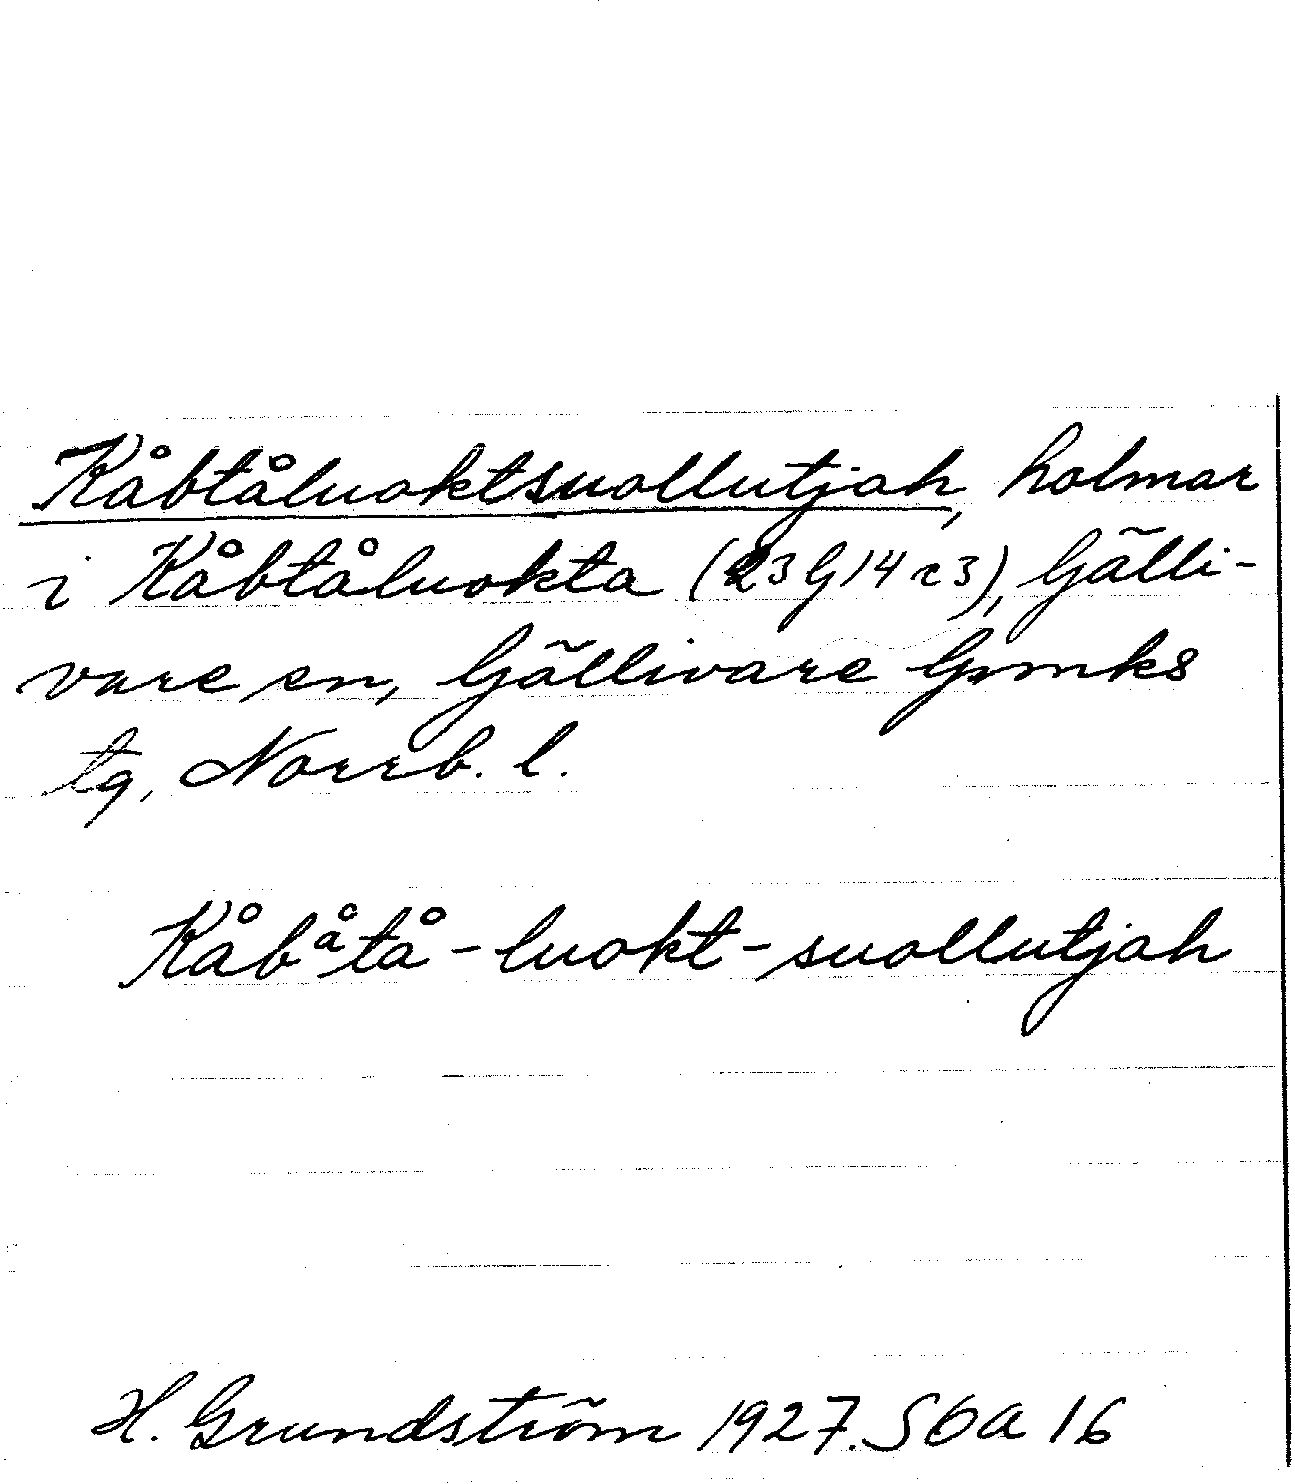 Kåbtåluoktsuollutjah, holmar
i Kåbtåluokta (23G14c3), Gälli-
vare sn, Gällivare lpmks
tg, Norrb. l.
Kåbåtå-luokt-suollutjah
H. Grundström 1927. S6a 16